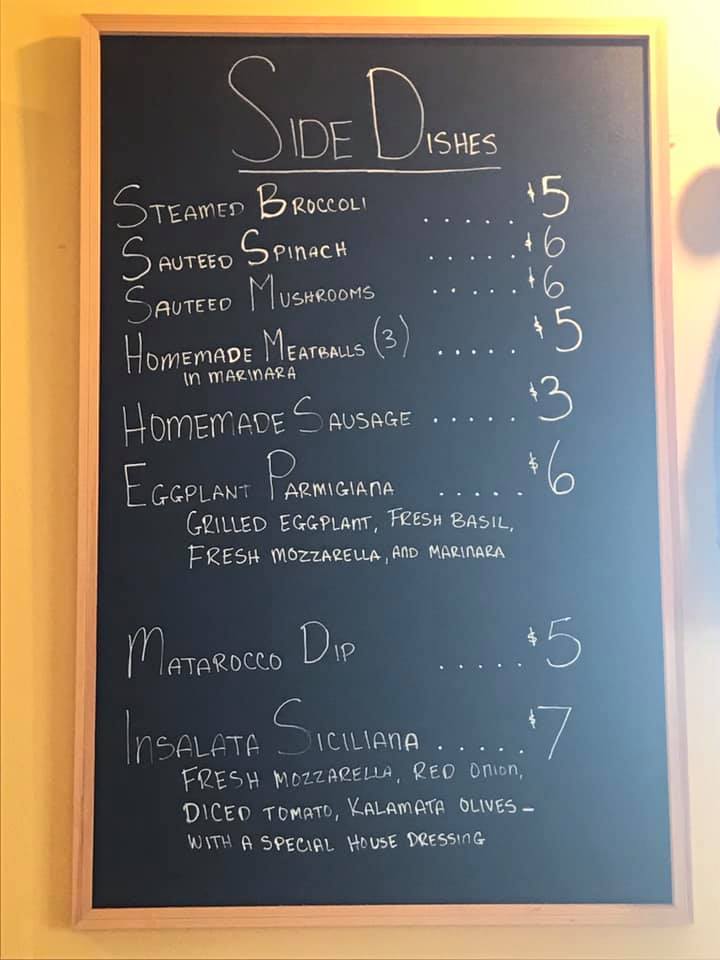 SIDE DISHES
STEAMED BROCCOLI ..... $5
SAUTEED SPINACH ..... $6
SAUTEED MUSHROOMS ..... $6
HOMEMADE MEATBALLS (3) ..... $5
IN MARINARA
HOMEMADE SAUSAGE ..... $3
EGGPLANT PARMIGIANA ..... $6
GRILLED EGGPLANT, FRESH BASIL,
FRESH MOZZARELLA, AND MARINARA
MATAROCCO DIP ..... $5
INSALATA SICILIANA ..... $7
FRESH MOZZARELLA, RED ONION,
DICED TOMATO, KALAMATA OLIVES –
WITH A SPECIAL HOUSE DRESSING